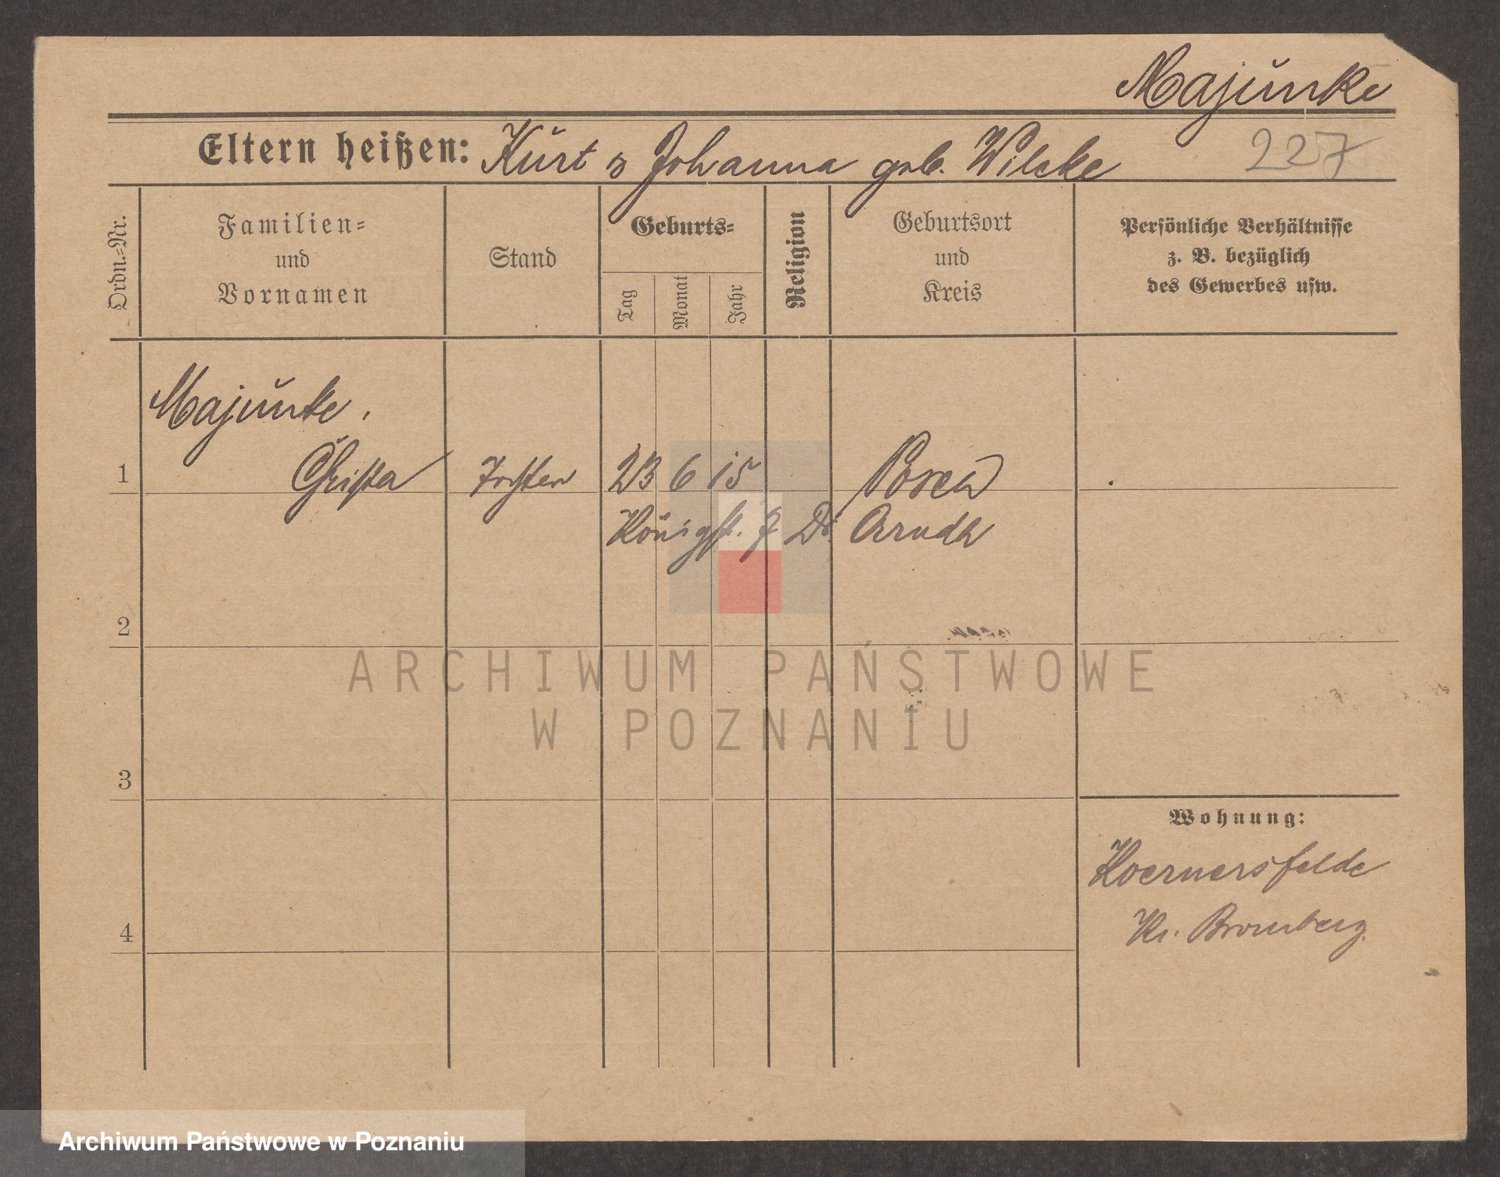 Majunke
Eltern heißen: Kurt & Johanna geb. Wilcke
227
Ordn.-Nr.
Familien-
und
Vornamen
Stand
Geburts-
Tag
Monat
Jahr
Religion
Geburtsort
und
Kreis
Persönliche Verhältnisse
z. B. bezüglich
des Gewerbes usw.
Majunke.
1 Christa Tochter 23 6 15 Posen
Königst. b Dr. Arndt
2
3
4
Wohnung:
Koernersfelde
Kr. Bromberg.
ARCHIWUM PAŃSTWOWE
W POZNANIU
Archiwum Państwowe w Poznaniu